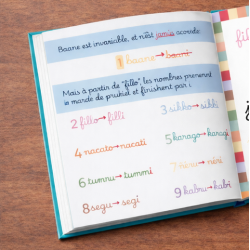 Baane est invariable, et n'est jamais accordé
1 baane → baani
Mais à partir de "fillo", les nombres prennent
la marque du pluriel et finissent par i.
2 fillo → filli
3 sikko → sikki
4 nacato → nacati
5 karago → karagi
6 tumnu → tummi
8 segu → segi
9 kabnu → kabi
fil